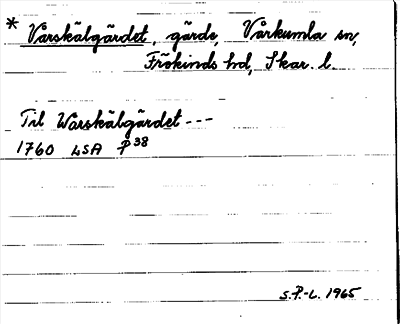 * Vårskälgärdet, gärde, Vårkumla sn,
Frökinds hd, Skar. l.
Til Wårskälgärdet ---
1760 LSA P38
S.P.-L. 1965